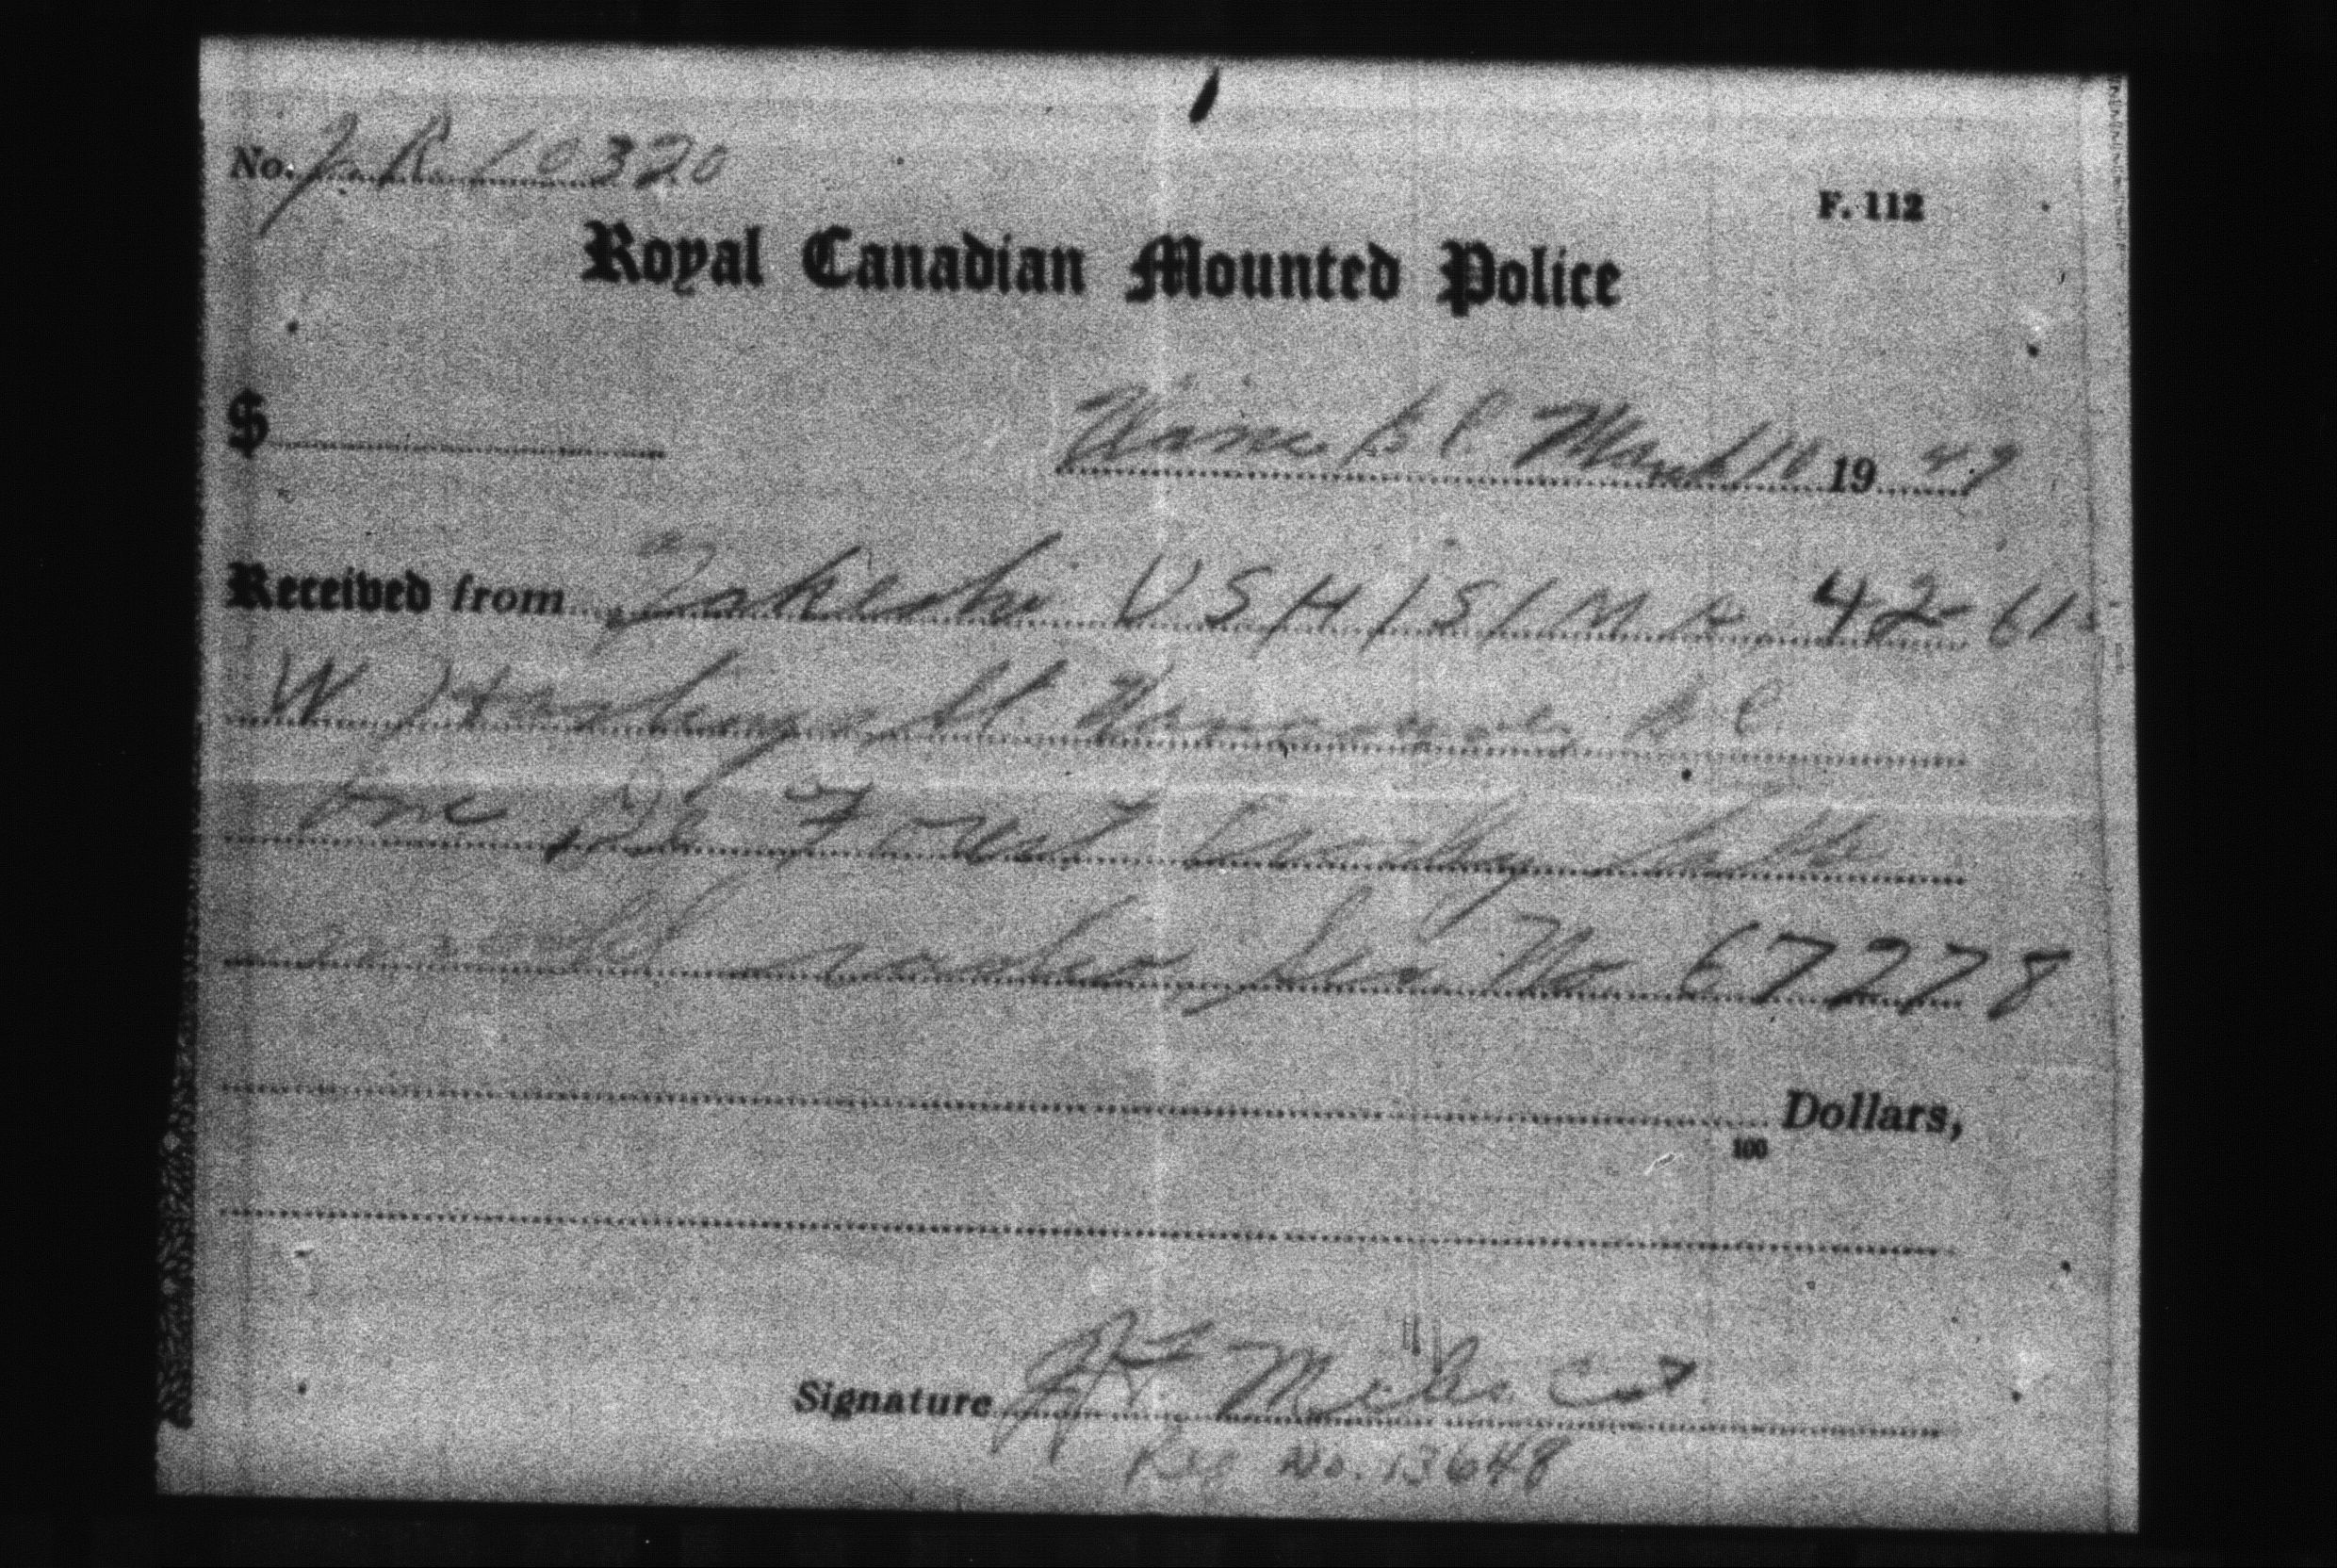 No. J.R. 10320
F. 112
Royal Canadian Mounted Police
$
B C March 10 19 49
Received from Takeshi USHISIMA 42-61-
W Hastings St. Vancouver B.C.
One De Forest Crosley
radio, Ser. No. 67278
Dollars,
100
Signature
Reg No. 13648